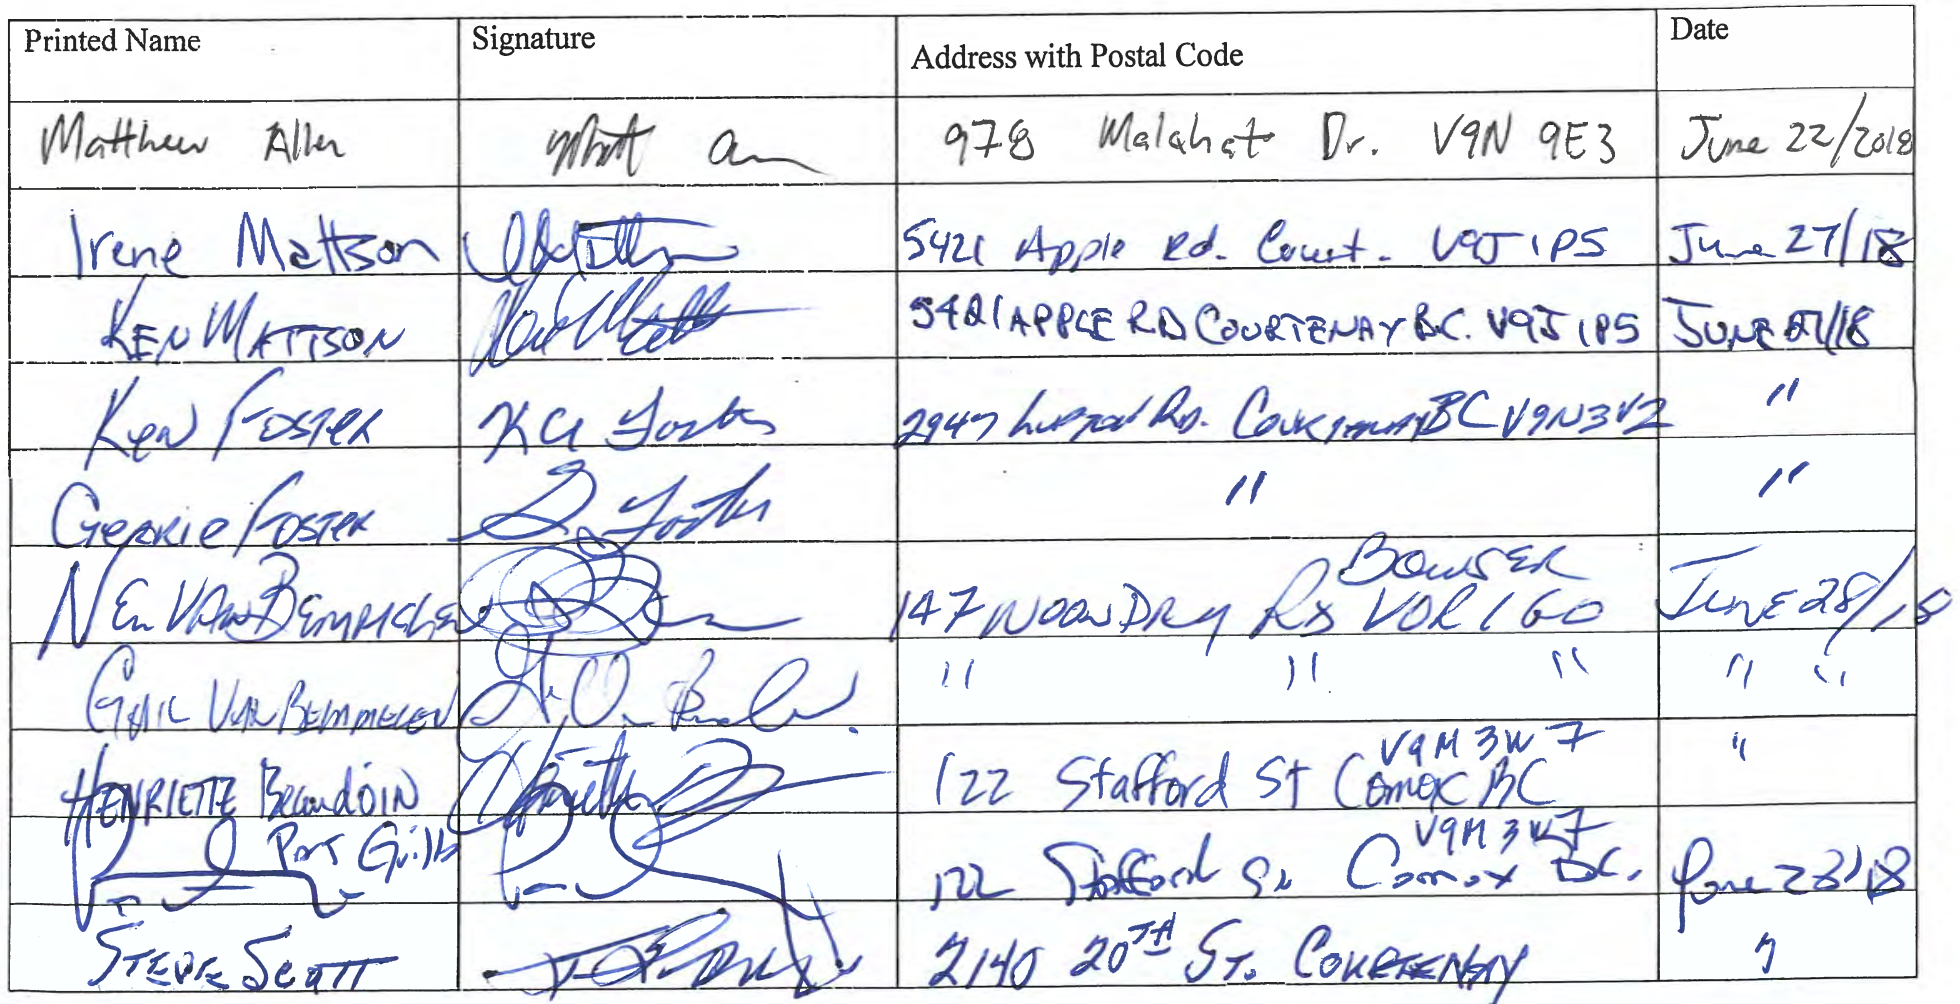 Printed Name Signature Address with Postal Code Date
Matthew Allen Matt 978 Malahat Dr. V9N 9E3 June 22/2018
Irene Mattson 5421 Apple Rd. Court. V9J 1P5 June 27/18
KEN MATTSON 5421 APPLE RD COURTENAY BC. V9J 1P5 JUNE 27/18
Ken FOSTER Foster 2947 Rd. COURTENAY BC V9N3V2 "
GERRIE FOSTER G. Foster " "
NEIL VAN BEMMELEN 147 Rd BOWSER V0R 1G0 JUNE 28/18
GAIL VAN BEMMELEN " " " " "
HENRIETTE Beaudoin Henriette 122 Stafford St Comox BC V9M 3W7 "
122 Stafford St Comox BC. V9M 3W7 June 28/18
STEVE SCOTT 2140 20TH ST. COURTENAY "